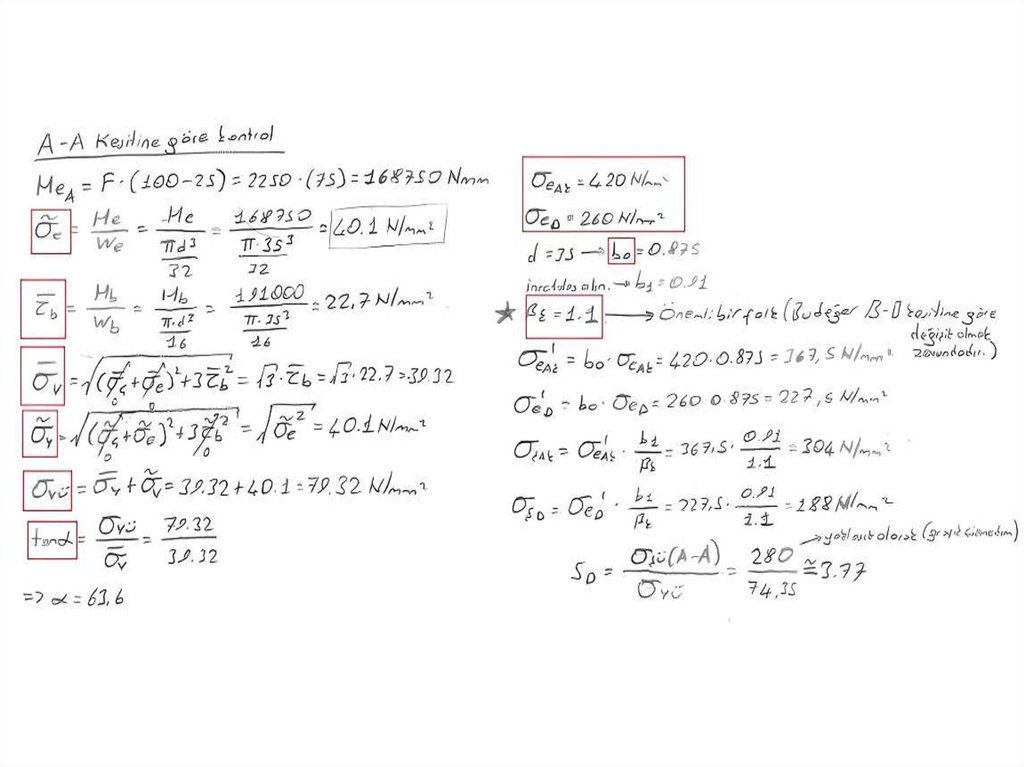 A-A Kesitine göre kontrol
MeA = F·(100-25) = 2250·(75) = 168750 Nmm
σ̃e = Me/We = Me/(πd³/32) = 168750/(π·35³/32) = 40.1 N/mm²
τ̄b = Mb/Wb = Mb/(π·d³/16) = 191000/(π·35³/16) = 22,7 N/mm²
σ̄v = √((σ̄ç+σ̄e)²+3τ̄b²) = √3·τ̄b = √3·22.7 = 39.32
0 0
σ̃v = √((σ̃ç+σ̃e)²+3τ̃b²) = √σ̃e² = 40.1 N/mm²
0 0
σvü = σ̄v + σ̃v = 39.32+40.1 = 79.32 N/mm²
tanα = σvü/σ̄v = 79.32/39.32
=> α = 63,6
σeAk = 420 N/mm²
σeD = 260 N/mm²
d = 35 → b0 = 0.875
→ b1 = 0.91
★ βk = 1.1 → Önemli bir fark (Bu değer B-B kesitine göre
değişik olmak
zorundadır.)
σ'eAk = b0·σeAk = 420·0.875 = 367,5 N/mm²
σ'eD = b0·σeD = 260·0.875 = 227,5 N/mm²
σçAk = σ'eAk · b1/βk = 367,5·0.91/1.1 = 304 N/mm²
σşD = σ'eD · b1/βk = 227,5·0.91/1.1 = 188 N/mm²
→ yaklaşık olarak (grafik çizmedim)
SD = σşü(A-A)/σvü = 280/74,35 ≅ 3.77